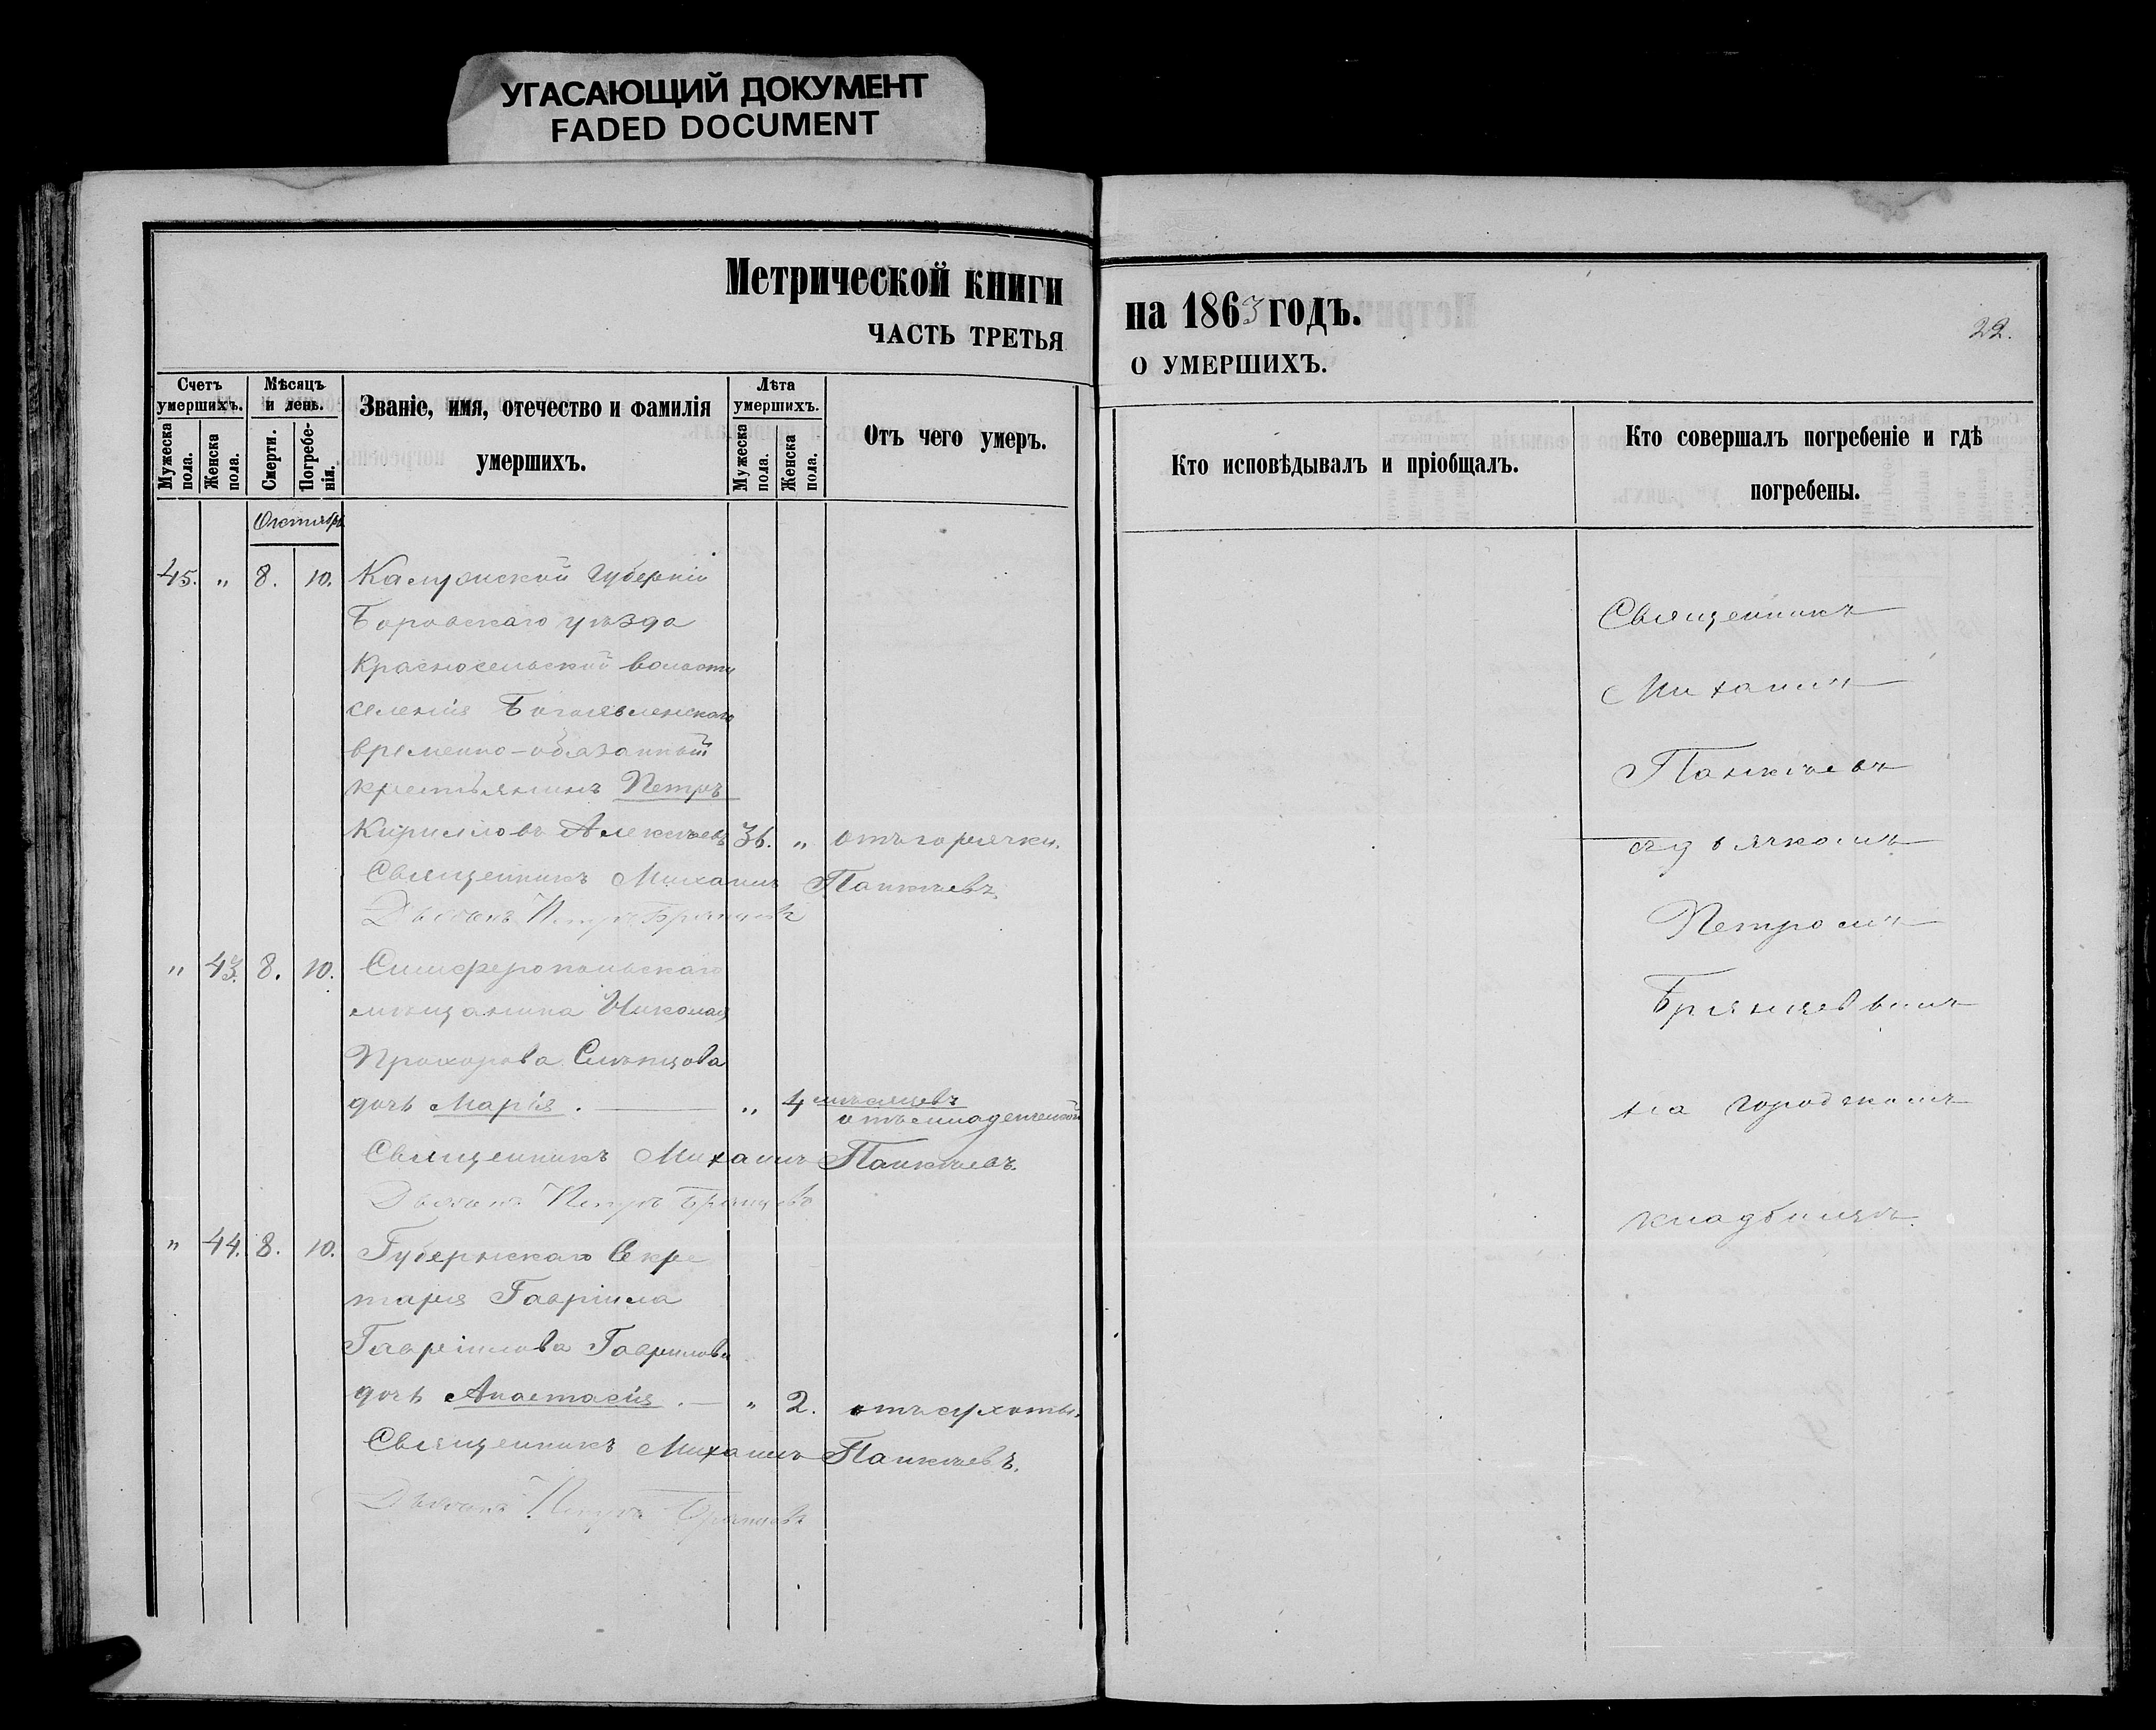 УГАСАЮЩИЙ ДОКУМЕНТ
FADED DOCUMENT
Метрической книги
ЧАСТЬ ТРЕТЬЯ
Счетъ умершихъ.
Мужеска пола.
Женска пола.
Мѣсяцъ и день.
Смерти.
Погребенія.
Званіе, имя, отечество и фамилія
умершихъ.
Лѣта умершихъ.
Мужеска пола.
Женска пола.
Отъ чего умеръ.
Октябрь
45. „ 8. 10. Калужской Губерніи
Боровскаго уѣзда
Красносельской волости
селенія Богоявленскаго
временно-обязанный
крестьянинъ Петръ
Кирилловъ Алексѣевъ 36. „ отъ горячки.
Священникъ Михаилъ Панкѣевъ
Дьячекъ Петръ Брянцевъ
„ 43. 8. 10. Симферопольскаго
мѣщанина Николая
Прохорова Слѣпцова
дочь Марія. „ 4 мѣсяцевъ
отъ младенческой
Священникъ Михаилъ Панкѣевъ.
Дьячекъ Петръ Брянцевъ
„ 44. 8. 10. Губернскаго Секре
таря Гавріила
Гавріилова Гаврилова
дочь Анастасія. „ 2. отъ сухоты.
Священникъ Михаилъ Панкѣевъ.
Дьячекъ Петръ Брянцевъ
на 1863 годъ.
22.
О УМЕРШИХЪ.
Кто исповѣдывалъ и пріобщалъ.
Кто совершалъ погребеніе и гдѣ
погребены.
Священникъ
Михаилъ
Панкѣевъ
съ дьячкомъ
Петромъ
Брянцевымъ
на городскомъ
кладбищѣ.